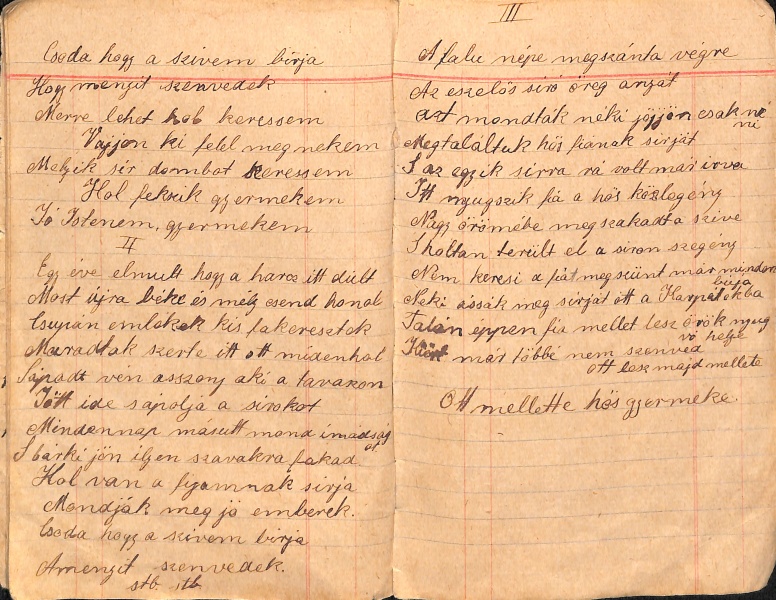 Csoda hogy a szivem birja
Hogy menyit szenvedek
Merre lehet hol keressem
Vajjon ki felel meg nekem
Melyik sir dombot keressem
Hol fekszik gyermekem
Jó Istenem, gyermekem
II
Egy éve elmult hogy a harcz itt dúlt
Most újra béke és mély csend honol
Csupán emlékek kis fakeresztok
Maradtak szerte itt ott midenhol
Sápadt vén asszony aki a tavaszon
Jött ide s ápolja a sirokot
Mindennap másutt mond imádságot
S bárki jön ilyen szavakra fakad
Hol van a fijamnak sirja
Mondják meg jó emberek.
Csoda hogy a szivem birja
Amenyit szenvedek.
stb. stb.
III
A falu népe megszánta végre
Az eszelős siró öreg anyát
azt mondták néki jöjjön csak néni
Megtaláltuk hős fiának sirját
S az egyik sirra rá volt már irva
Itt nyugszik fia a hős közlegény
Nagy örömébe megszakadt a szive
S holtan terült el a siron szegény
Nem keresi a fiát megszünt már minden búja
Neki ássák meg sirját ott a Kárpátokba
Talán éppen fia mellet lesz örök nyugvó helye
már többé nem szenved
ott lesz majd mellete
Ott mellette hős gyermeke.